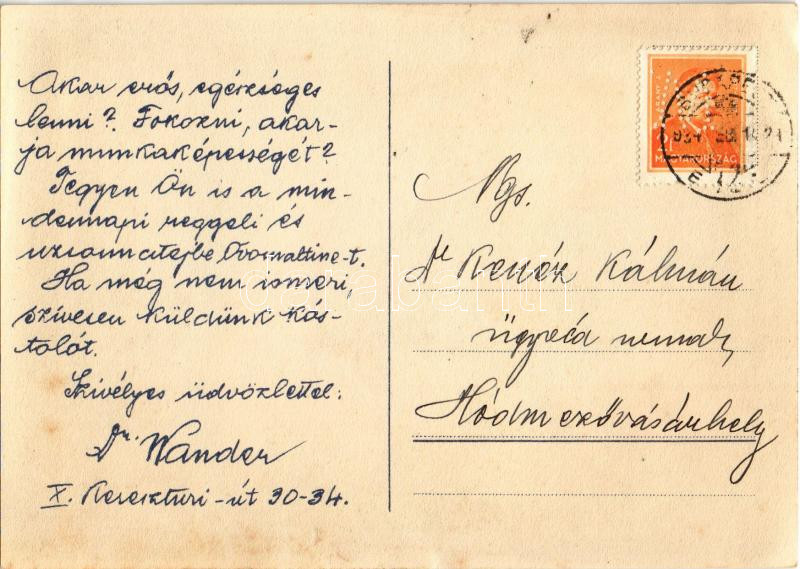 Akar erős, egészséges
lenni? Fokozni, akar-
ja munkaképességét?
Tegyen Ön is a min-
dennapi reggeli és
uzsonnatejbe Ovomaltine-t.
Ha még nem ismeri,
szívesen küldünk kós-
tolót.
Szívélyes üdvözlettel:
Dr. Wander
X. Kereszturi-út 30-34.
MAGYARORSZÁG
Ngs.
Dr Kenéz Kálmán
ügyvéd urnak,
Hódmezővásárhely
darabanth